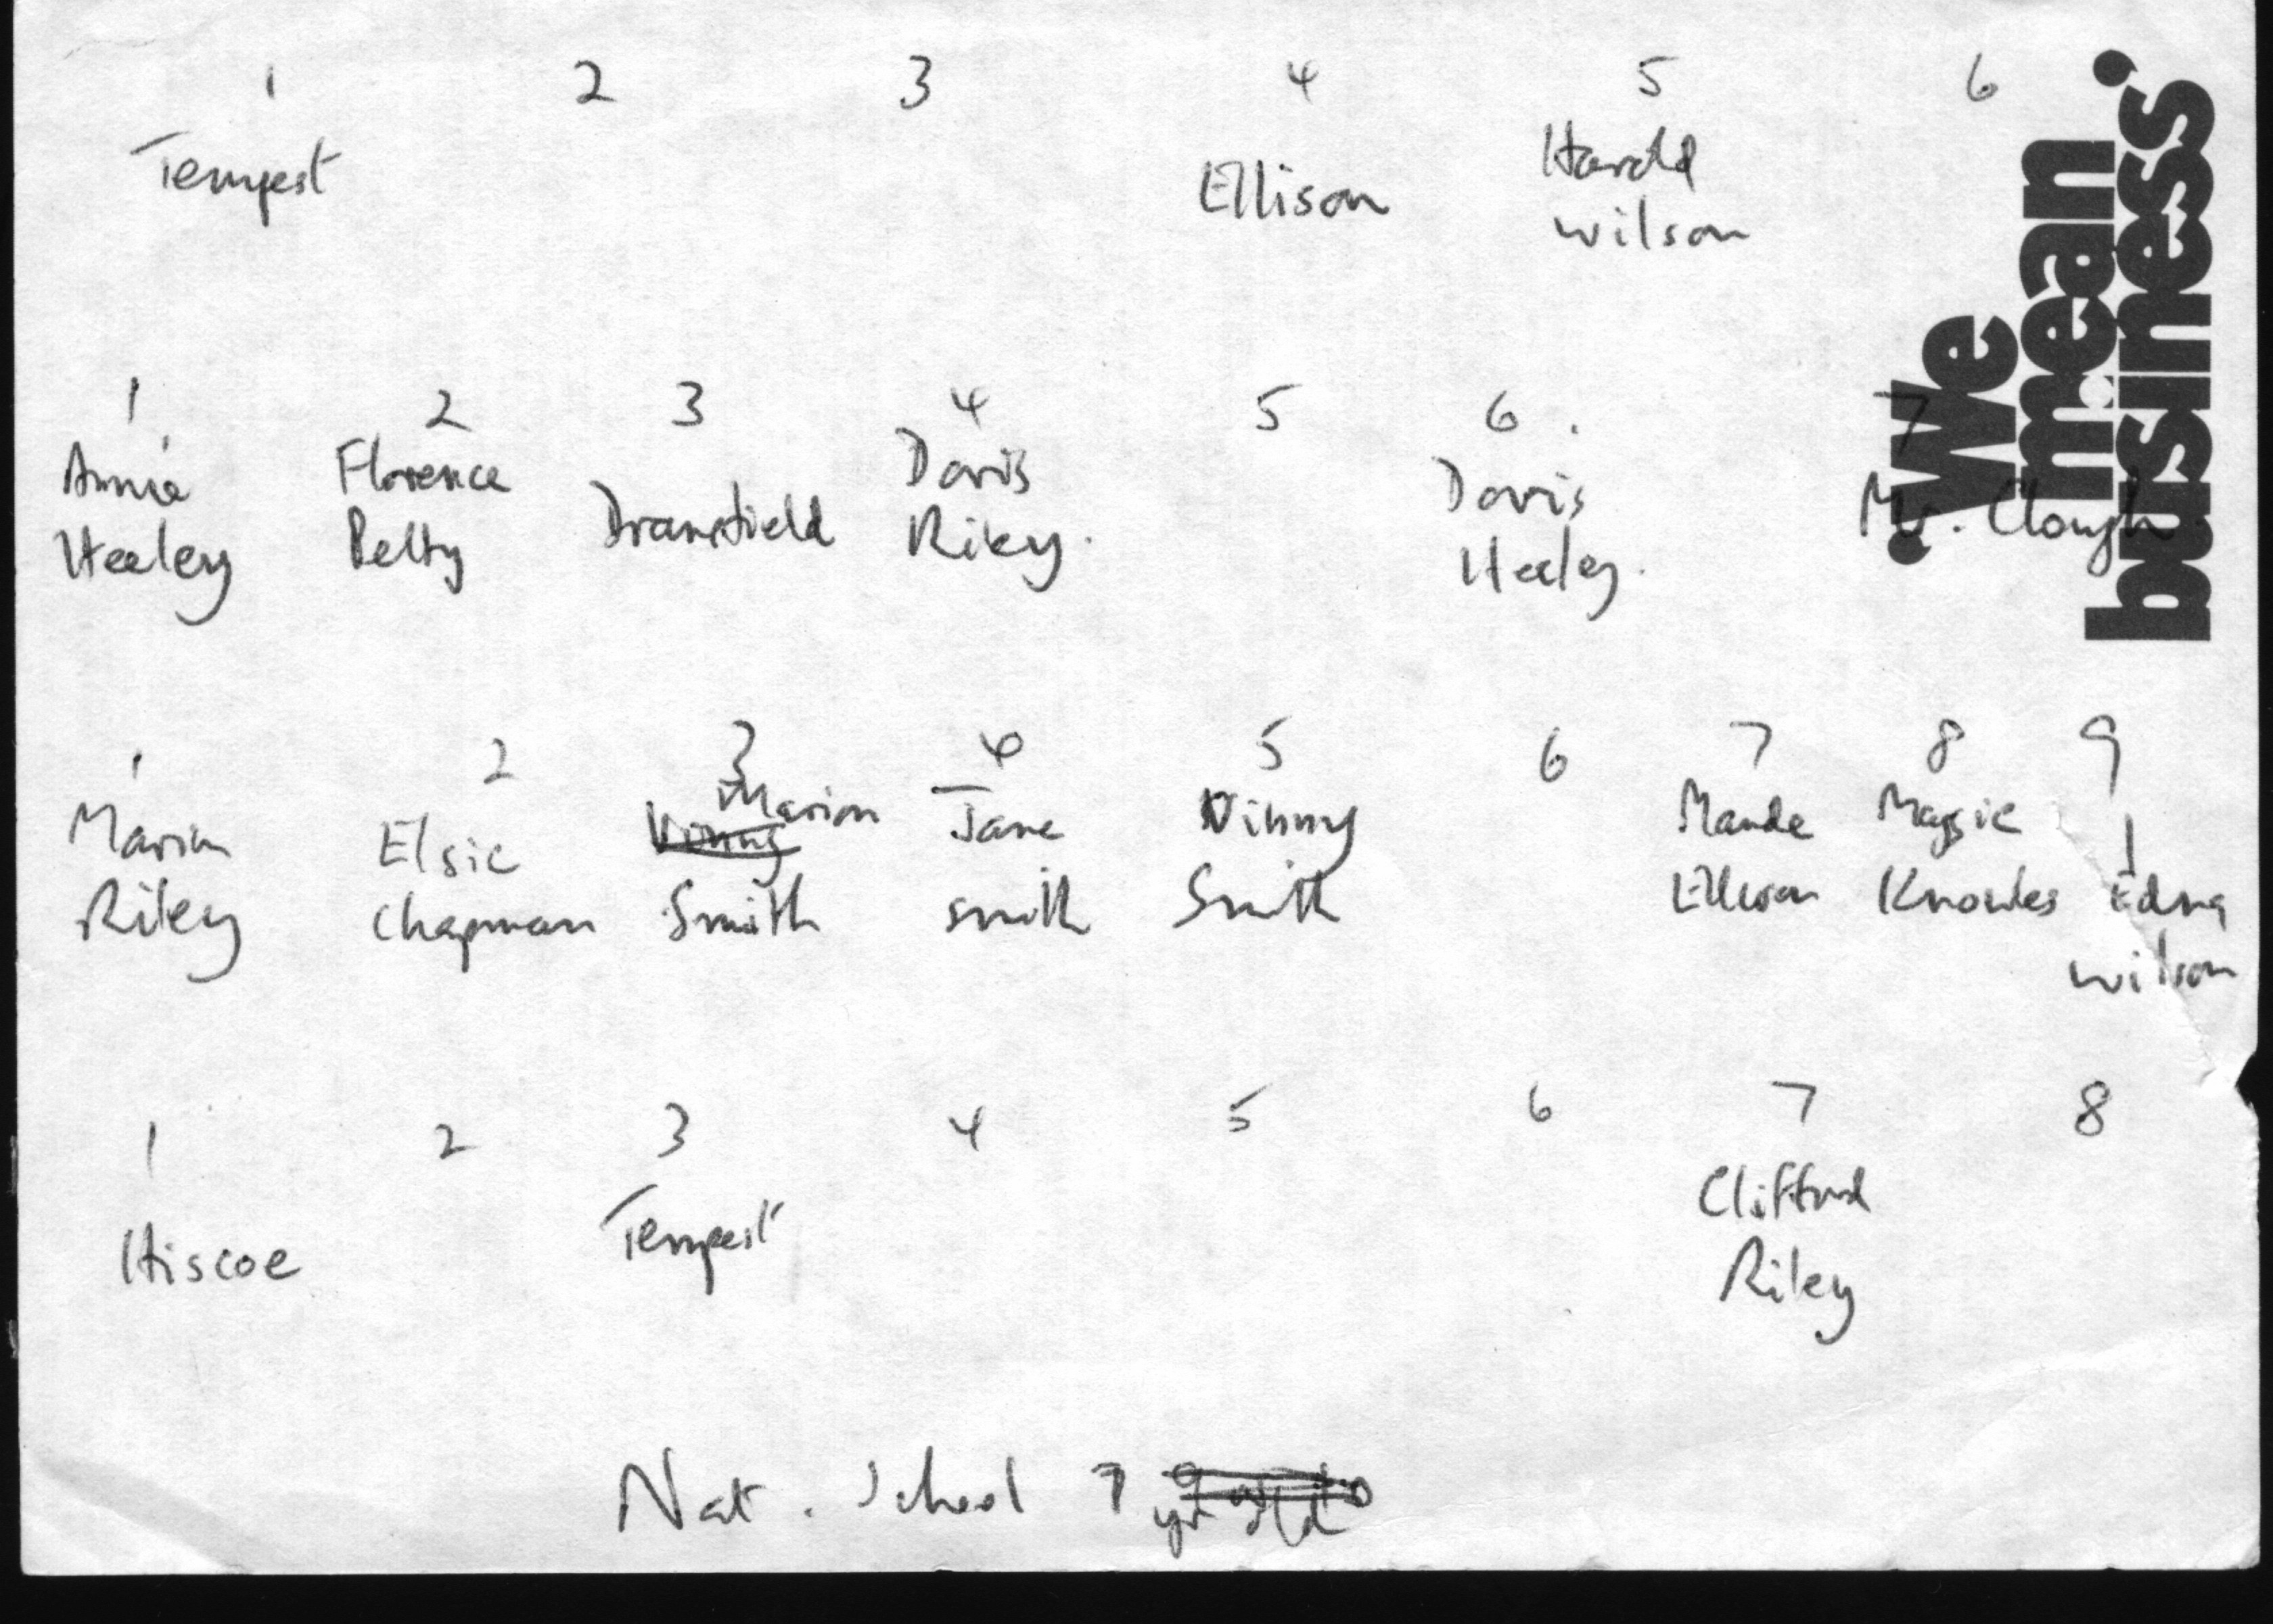 1 2 3 4 5 6
Tempest Ellison Harold
wilson
'We
mean
business'
1 2 3 4 5 6 7
Annie Florence Dransfield Doris Doris Mr. Clough
Heeley Petty Riley. Heeley.
1 2 3 4 5 6 7 8 9
Marion Elsie Vinny Marion Jane Vinny Maude Maggie Edna
Riley Chapman Smith smith Smith Ellison Knowles wilson
1 2 3 4 5 6 7 8
Hiscoe Tempest Clifford
Riley
Nat. School 7